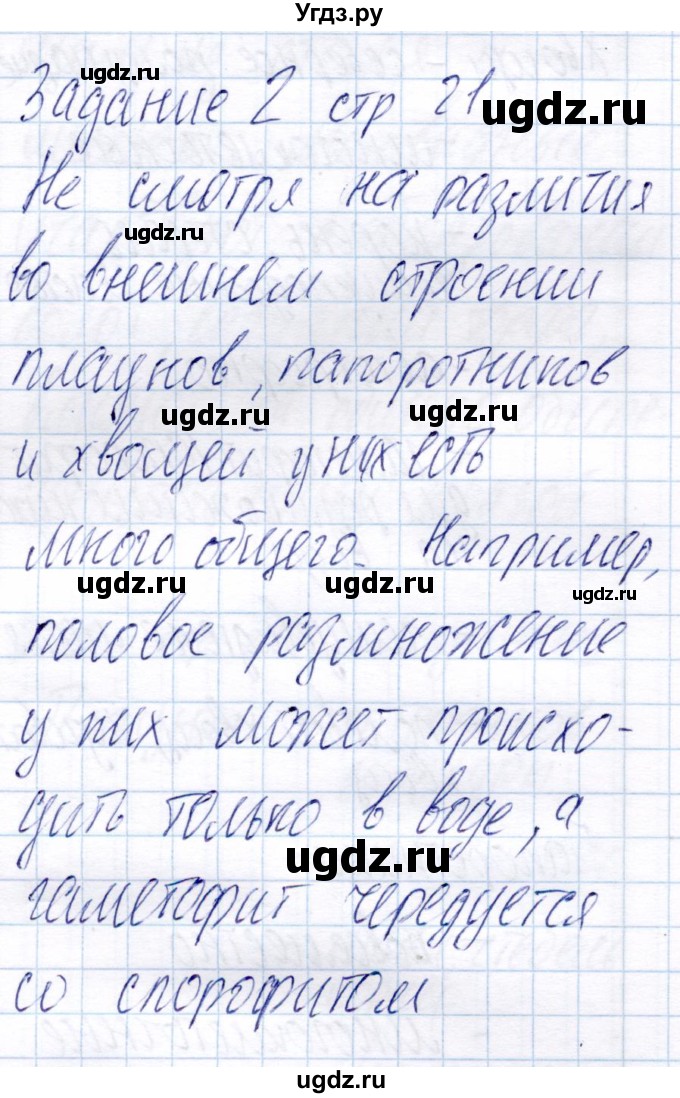 Угдз.ру
ugdz.ru
Задание 2 стр 21
ugdz.ru
Не смотря на различия
ugdz.ru
во внешнем строении
плаунов, папоротников
ugdz.ru ugdz.ru
и хвощей у них есть
много общего. Например,
ugdz.ru ugdz.ru ugdz.ru
половое размножение
у них может происхо-
дить только в воде, а
ugdz.ru
гаметафит чередуется
со спорофитом
ugdz.ru